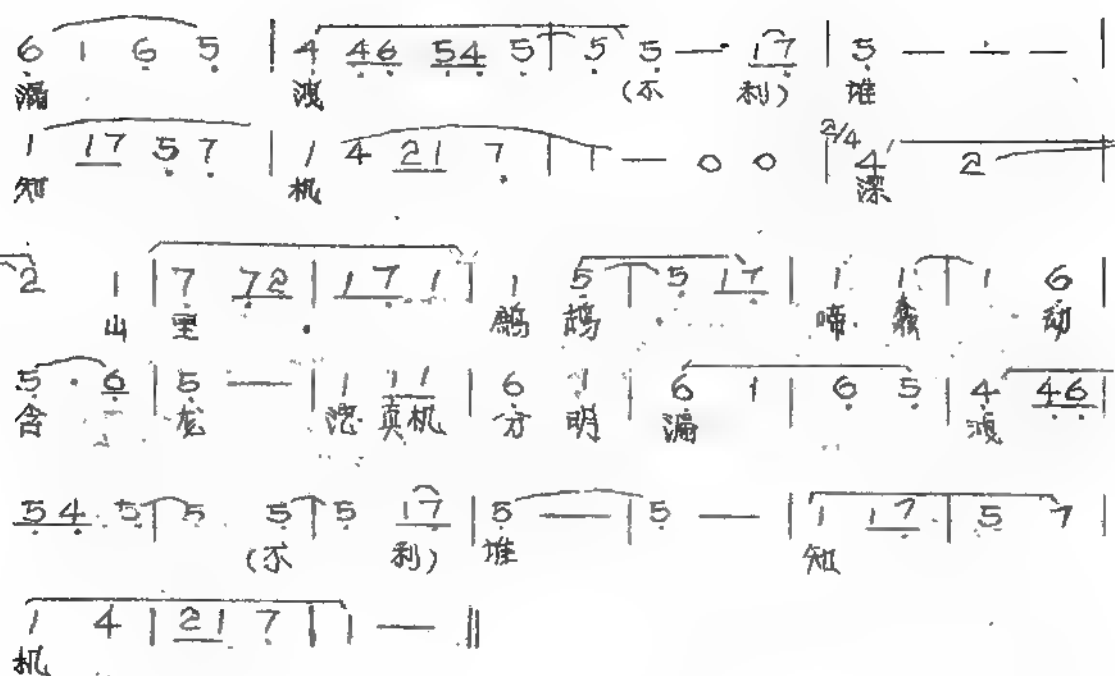 6 1 6 5 | 4 46 54 5 | 5 5 — 17 | 5 — — — |
漏 洩 (不 利) 堆
1 17 5 7 | 1 4 21 7 | 1 — 0 0 | 2/4 4 2 |
知 机 深
2 1 | 7 72 | 17 1 | 1 5 | 5 17 | 1 1 | 1 6 |
山 里 鹧 鸪 啼 动
5 · 6 | 5 — | 1 11 | 6 1 | 6 1 | 6 5 | 4 46 |
含 龙 泄 真机 分 明 漏 洩
54 5 | 5 5 | 5 17 | 5 — | 5 — | 1 17 | 5 7 |
(不 利) 堆 知
1 4 | 21 7 | 1 — ‖
机